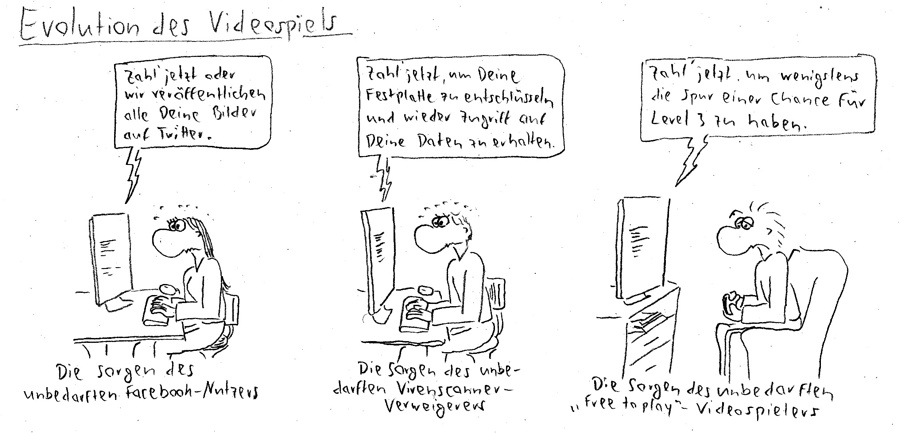 Evolution des Videospiels
Zahl' jetzt oder
wir veröffentlichen
alle Deine Bilder
auf Twitter.
Zahl' jetzt, um Deine
Festplatte zu entschlüsseln
und wieder Zugriff auf
Deine Daten zu erhalten.
Zahl' jetzt, um wenigstens
die Spur einer Chance für
Level 3 zu haben.
Die Sorgen des
unbedarften Facebook-Nutzers
Die Sorgen des unbe-
darften Virenscanner-
Verweigerers
Die Sorgen des unbedarften
„Free to play"-Videospielers